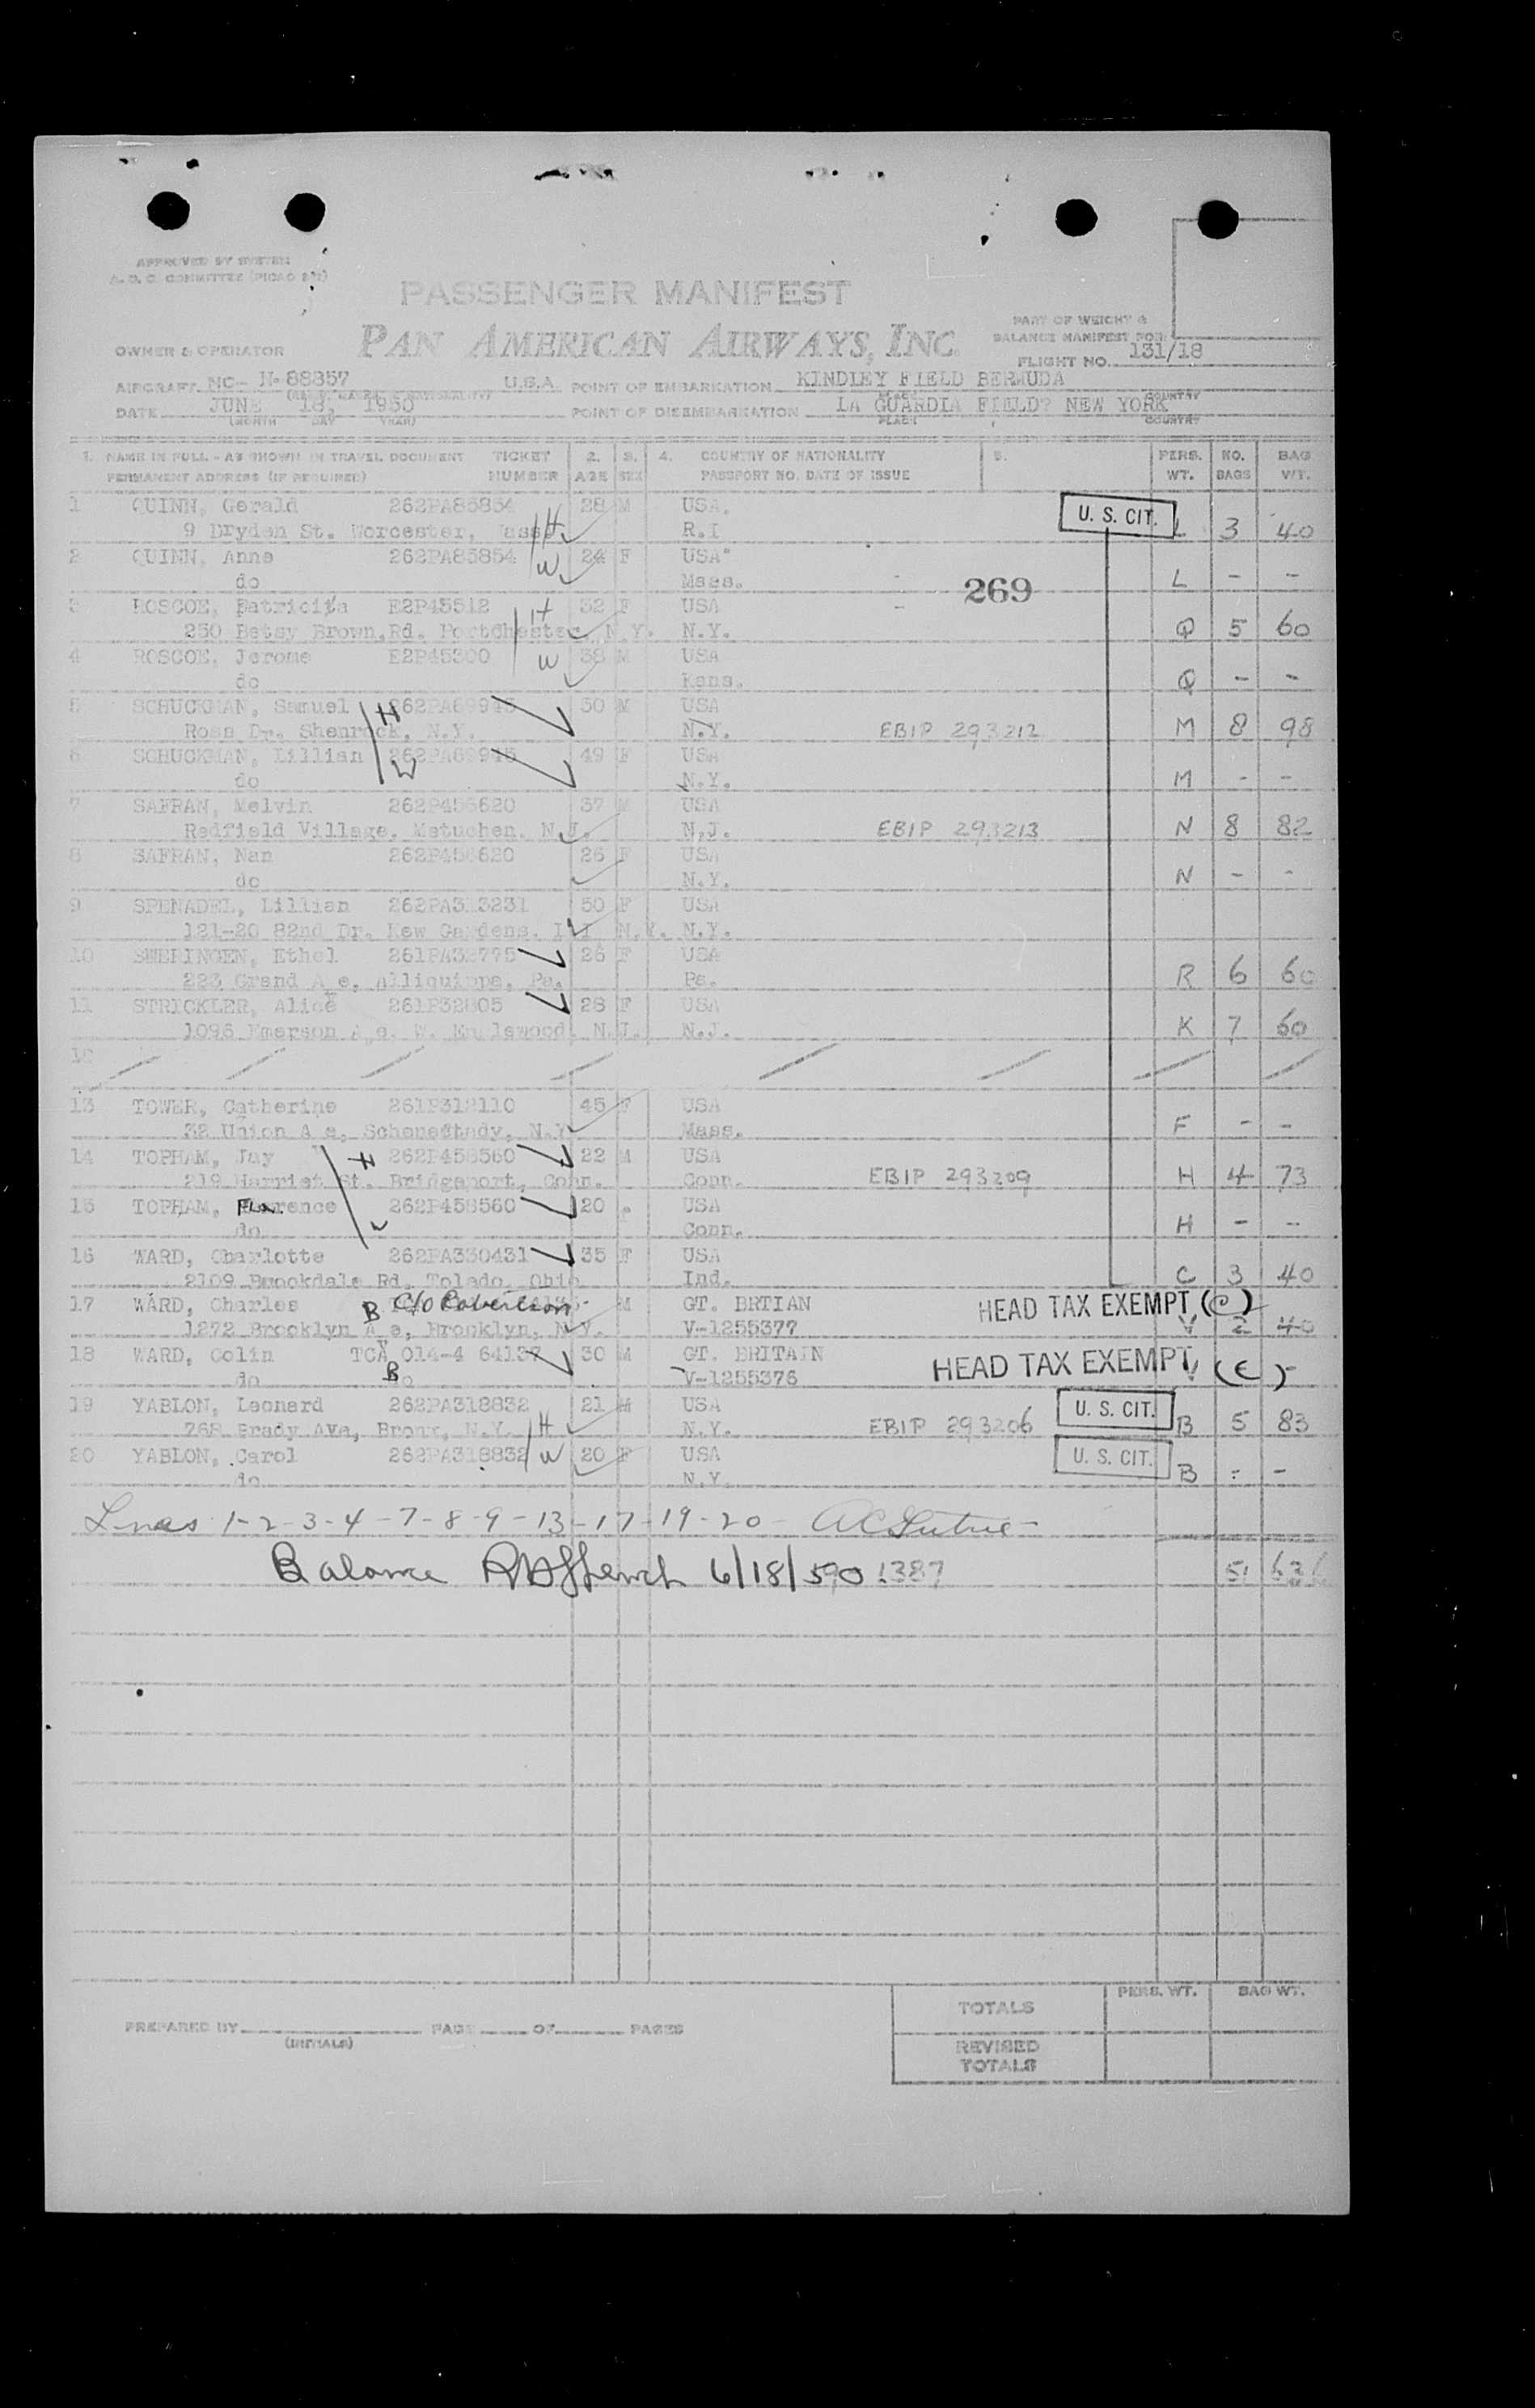 APPROVED BY SYSTEM
A.O.C. COMMITTEE (PICAO
PASSENGER MANIFEST
PAN AMERICAN AIRWAYS, INC.
PART OF WEIGHT &
BALANCE MANIFEST FOR
OWNER & OPERATOR
FLIGHT NO. 131/18
AIRCRAFT NC- N-88857 U.S.A. POINT OF EMBARKATION KINDLEY FIELD BERMUDA
DATE JUNE 18, 1950 POINT OF DISEMBARKATION LA GUARDIA FIELD? NEW YORK
(MONTH DAY YEAR) PLACE COUNTRY
1. NAME IN FULL - AS SHOWN IN TRAVEL DOCUMENT TICKET 2. 3. 4. COUNTRY OF NATIONALITY 5. PERS. NO. BAG
PERMANENT ADDRESS (IF REQUIRED) NUMBER AGE SEX PASSPORT NO. DATE OF ISSUE WT. BAGS WT.
1 QUINN, Gerald 262PA85854 28 M USA. U. S. CIT.
9 Dryden St. Worcester, Mass. H R.I L 3 40
2 QUINN, Anne 262PA85854 W 24 F USA"
do Mass. 269 L - -
3 ROSCOE, Patricia E2P45512 H 32 F USA
250 Betsy Brown Rd. Portchester, N.Y. N.Y. Q 5 60
4 ROSCOE, Jerome E2P45300 W 38 M USA
do Kans. Q - -
5 SCHUCKMAN, Samuel H 262PA69945 50 M USA
Ross Dr. Shenrock, N.Y. N.Y. EBIP 293212 M 8 98
6 SCHUCKMAN, Lillian W 262PA69945 49 F USA
do N.Y. M - -
7 SAFRAN, Melvin 262P456620 37 M USA
Redfield Village, Metuchen. N.J. N.J. EBIP 293213 N 8 82
8 SAFRAN, Nan 262P456620 26 F USA
do N.Y. N - -
9 SPENADEL, Lillian 262PA313231 50 F USA
121-20 82nd Dr. Kew Gardens. L I N.Y. N.Y.
10 SWERINGEN, Ethel 261PA32775 26 F USA
223 Grand A e, Alliquippa, Pa. Pa. R 6 60
11 STRICKLER, Alice 261P32805 28 F USA
1096 Emerson A e. W. Englewood, N.J. N.J. K 7 60
12
13 TOWER, Catherine 261P312110 45 F USA
32 Union A e, Schenectady, N.Y. Mass. F - -
14 TOPHAM, Jay H 262P458560 22 M USA
219 Harriet St. Bridgeport, Conn. Conn. EBIP 293209 H 4 73
15 TOPHAM, Florence 262P458560 20 USA
do W Conn. H - -
16 WARD, Charlotte 262PA330431 35 F USA
2109 Brookdale Rd. Toledo, Ohio Ind. C 3 40
17 WARD, Charles B C/o Robertson M GT. BRTIAN HEAD TAX EXEMPT (C)
1272 Brooklyn A e, Brooklyn, N.Y. V-1255377 V 2 40
18 WARD, Colin TCA 014-4 64137 30 M GT. BRITAIN HEAD TAX EXEMPT (C)
do B V-1255376 V -
19 YABLON, Leonard 262PA318832 21 M USA U. S. CIT.
768 Brady Ave, Bronx, N.Y. H N.Y. EBIP 293206 B 5 83
20 YABLON, Carol 262PA318832 W 20 F USA U. S. CIT.
do N.Y. B - -
Lines 1-2-3-4-7-8-9-13-17-19-20-
Balance 6/18/50 1387 51 636
TOTALS PERS. WT. BAG WT.
PREPARED BY PAGE OF PAGES
(INITIALS)
REVISED
TOTALS